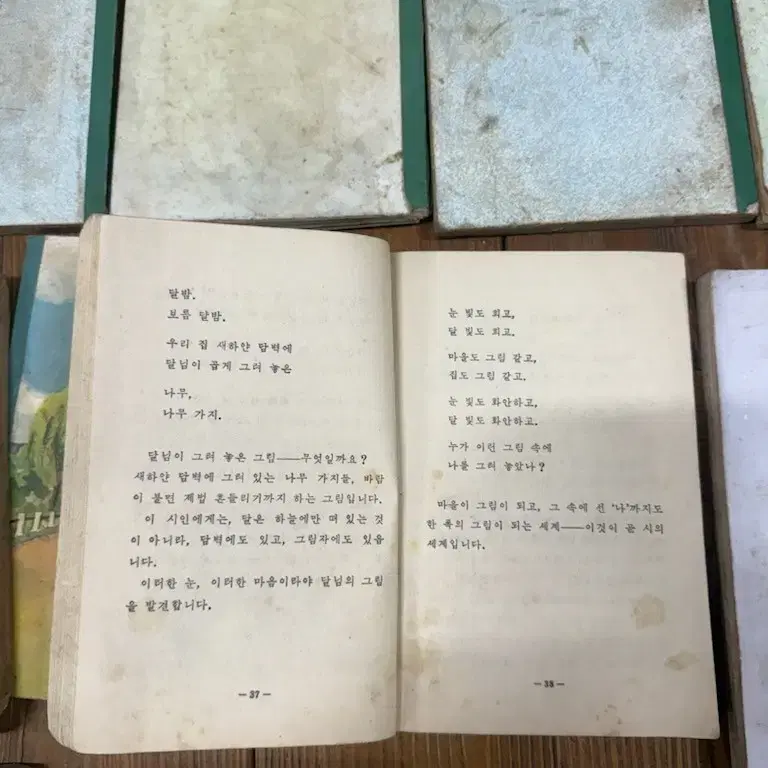 달밤.
보름 달밤.
우리 집 새하얀 담벽에
달님이 곱게 그려 놓은
나무,
나무 가지.
달님이 그려 놓은 그림——무엇일까요?
새하얀 담벽에 그려 있는 나무 가지들, 바람
이 불면 제법 흔들리기까지 하는 그림입니다.
이 시인에게는, 달은 하늘에만 떠 있는 것
이 아니라, 담벽에도 있고, 그림자에도 있읍
니다.
이러한 눈, 이러한 마음이라야 달님의 그림
을 발견합니다.
— 37 —
눈 빛도 희고,
달 빛도 희고.
마을도 그림 같고,
집도 그림 같고.
눈 빛도 화안하고,
달 빛도 화안하고.
누가 이런 그림 속에
나를 그려 놓았나?
마을이 그림이 되고, 그 속에 선 '나'까지도
한 폭의 그림이 되는 세계——이것이 곧 시의
세계입니다.
— 38 —